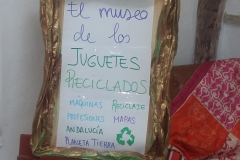 El museo
de los
JUGUETES
RECICLADOS
MÁQUINAS RECICLAJE
PROFESIONES MAPAS
ANDALUCÍA
PLANETA TIERRA